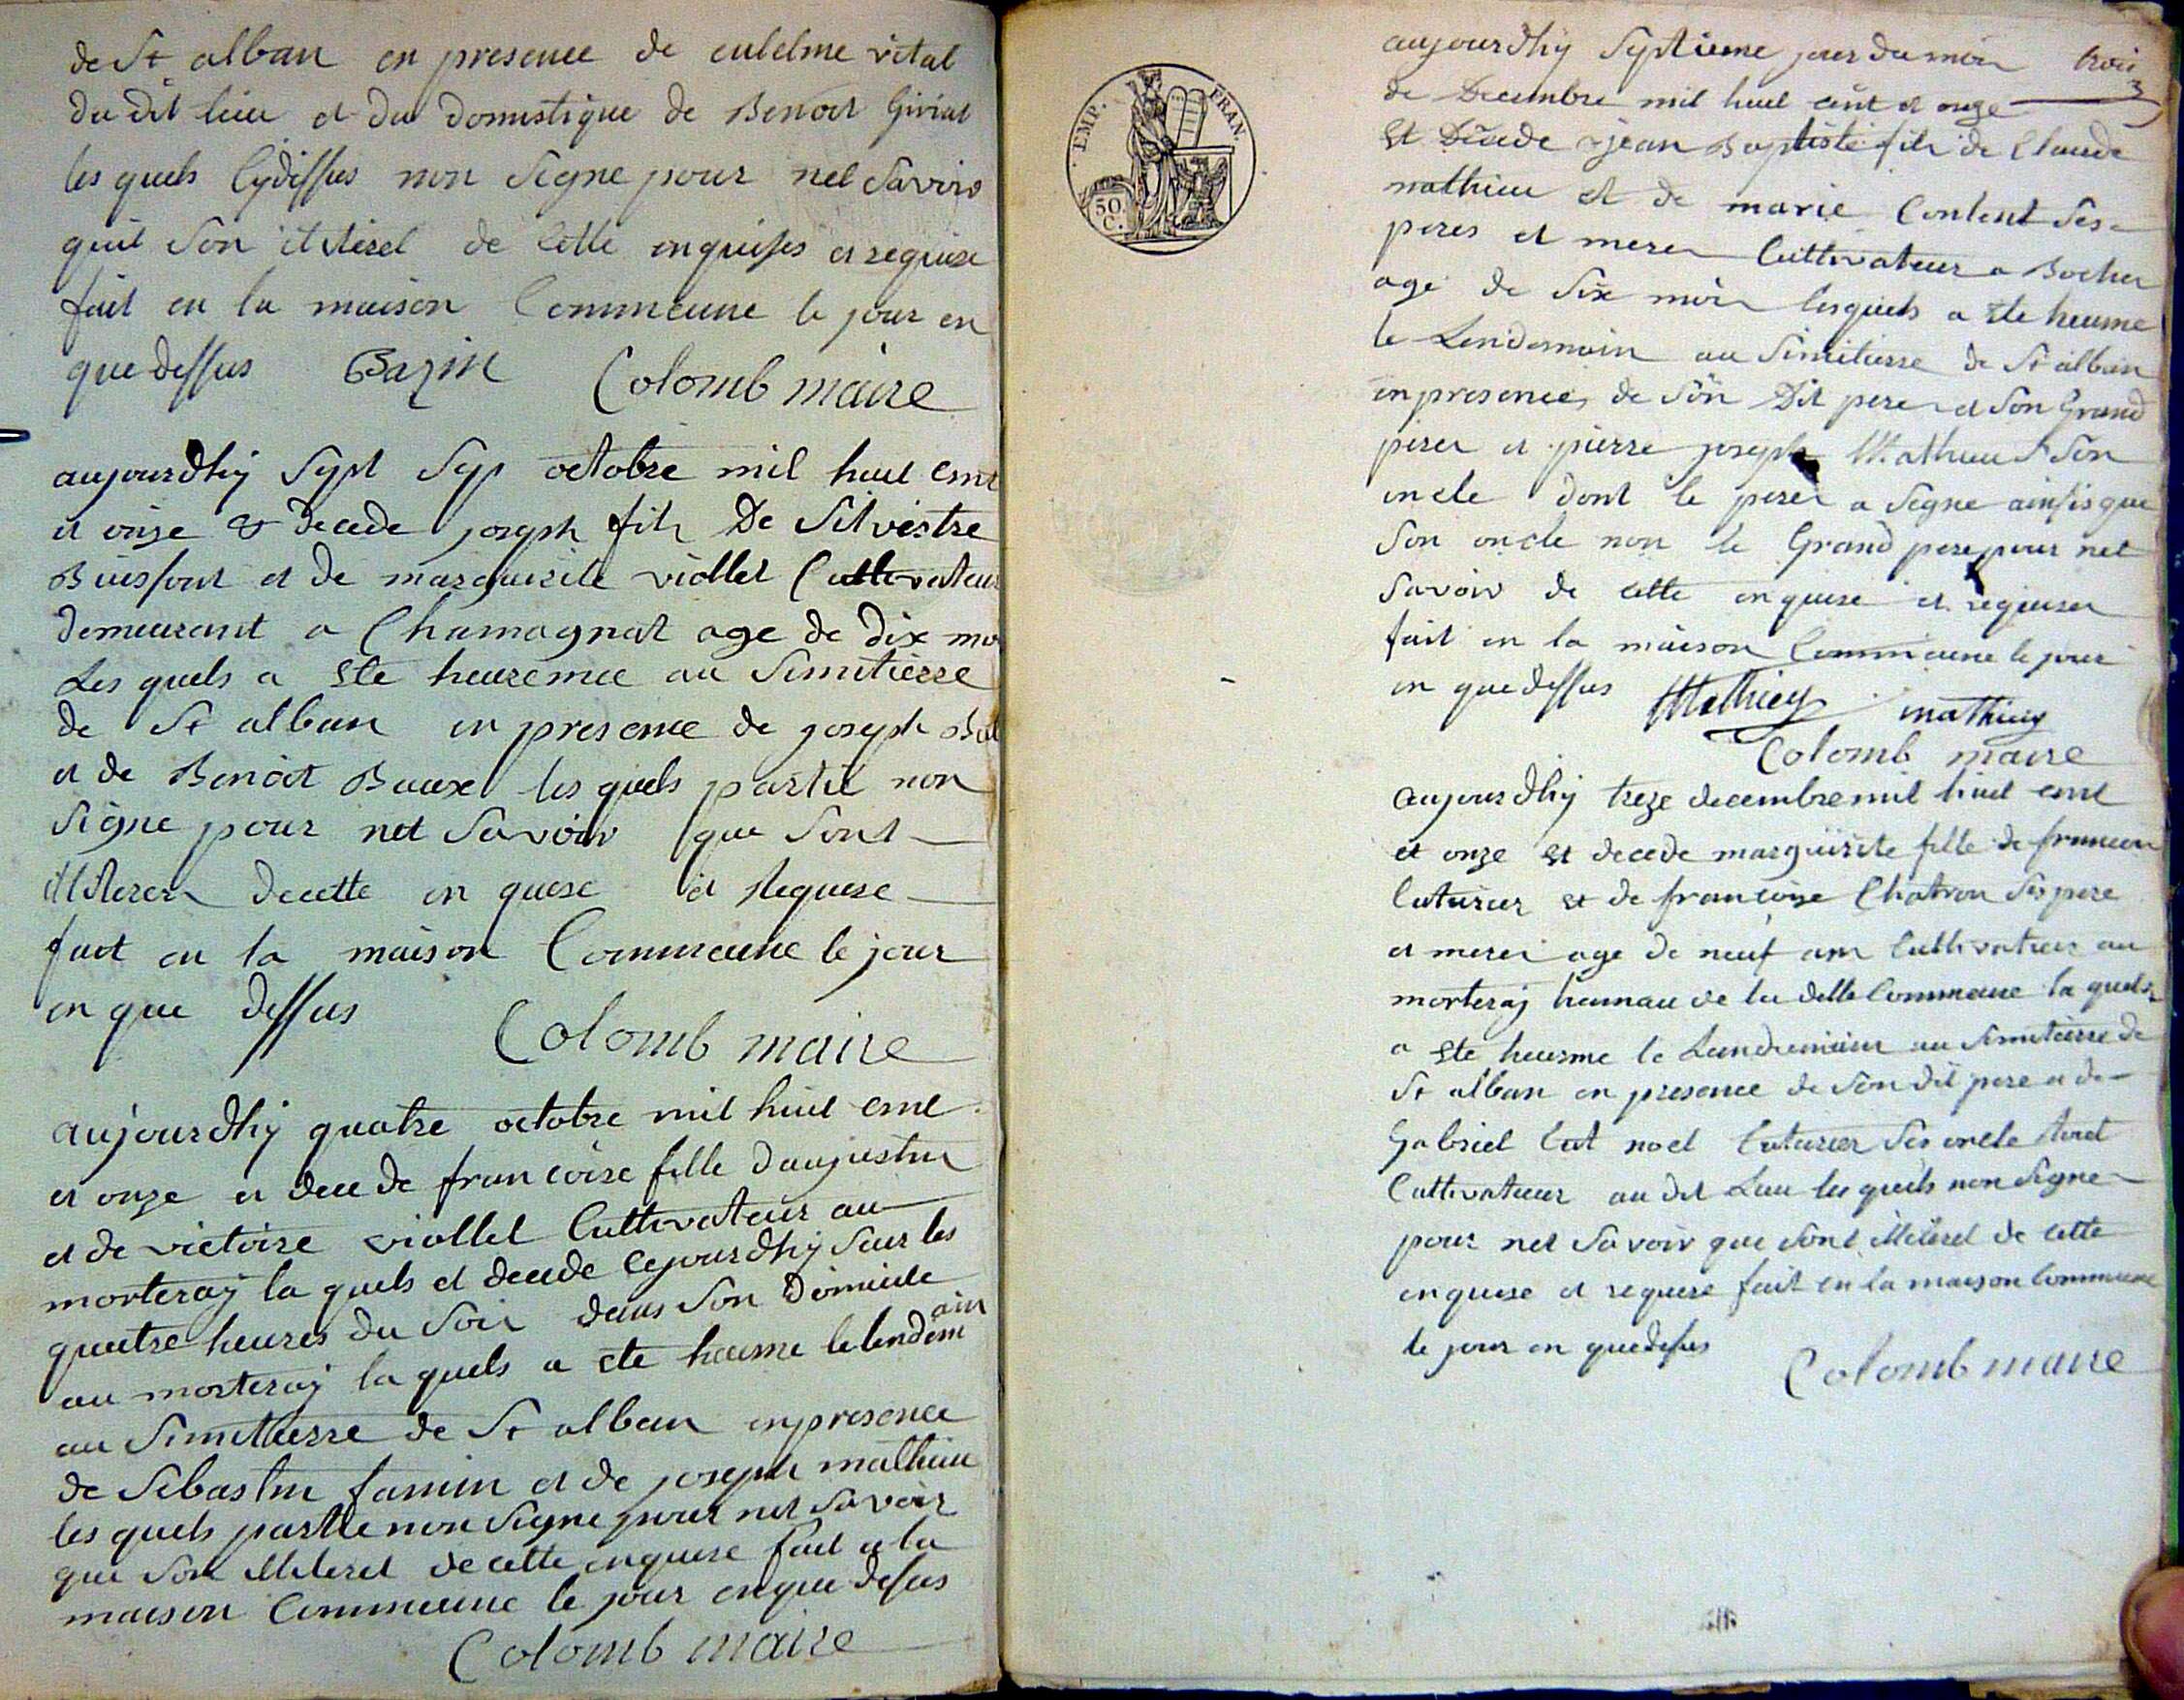 de St alban en presence de
du dit lieu et du domestique de Benoit Giriat
les quels cydissus non signe pour nel Savoir
quil Son de cette enquises et requise
fait en la maison Commeune le jour en
que dessus Bazin Colomb maire
aujourdhÿ Sypt octobre mil huit cent
et onze decede joseph fils De Silvestre
et de marguirite viollet Cultivateur
demeurant a Chamagnat age de dix
Les quels a Ete heuremee au Simitierre
de St alban en presence de joseph
et de Benoit les quels partie non
Signe pour net Savoir que Sont
decette en quese et Requese
fait en la maison Commeune le jour
en que dessus
Colomb maire
aujourdhÿ quatre octobre mil huit cent
et onze et decede francoise fille daugustin
et de victoire viollet Cultivateur au
morteraÿ la quels et decede cejourdhÿ Seur les
quatre heures du Soir dans Son Domicile
au morteraÿ la quels a ete heume le lendem ain
au Simitierre de St alban en presence
de Sebastin famin et de joseph mathieu
les quels partie non Signe pour net Savoir
que Son decette enquise fait a la
maison Commeune le jour enque desus
Colomb maire
EMP. FRAN.
50 C.
aujourdhÿ Syptieme jour du mois trois
de Decembre mil huit cent et onze 3
Et Decede jean Baptiste fils de Claude
mathieu et de marie Content Ses
peres et meres Cultivateur a Bochex
age de Six mois lesquels a Ete heume
le Lendemain au Simitierre de St alban
en presence de Son Dit pere et Son Grand
peres et pierre joseph Mathieu Son
oncle dont le peres a Signe ainsis que
Son oncle non le Grand pere pour net
Savoir de cette enquise et requise
fait en la maison Commeune le jour
en que dessus Mathieu mathieu
Colomb maire
aujourdhÿ treze decembre mil huit cent
et onze et decede marguirite fille de francois
Couturier et de francoise Chatron Ses pere
et meres age de neuf ans Cultivateur au
morteraÿ hameau de la ditte Commeune la quels
a Ete heume le Lendemain au Simitierre de
St alban en presence de Son dit pere et de
Gabriel noel Couturier Ses oncle
Cultivateur au dit Lieu les quels non Signe
pour net Savoir que Sont de cette
enquise et requise fait en la maison Commeune
le jour en que desus
Colomb maire